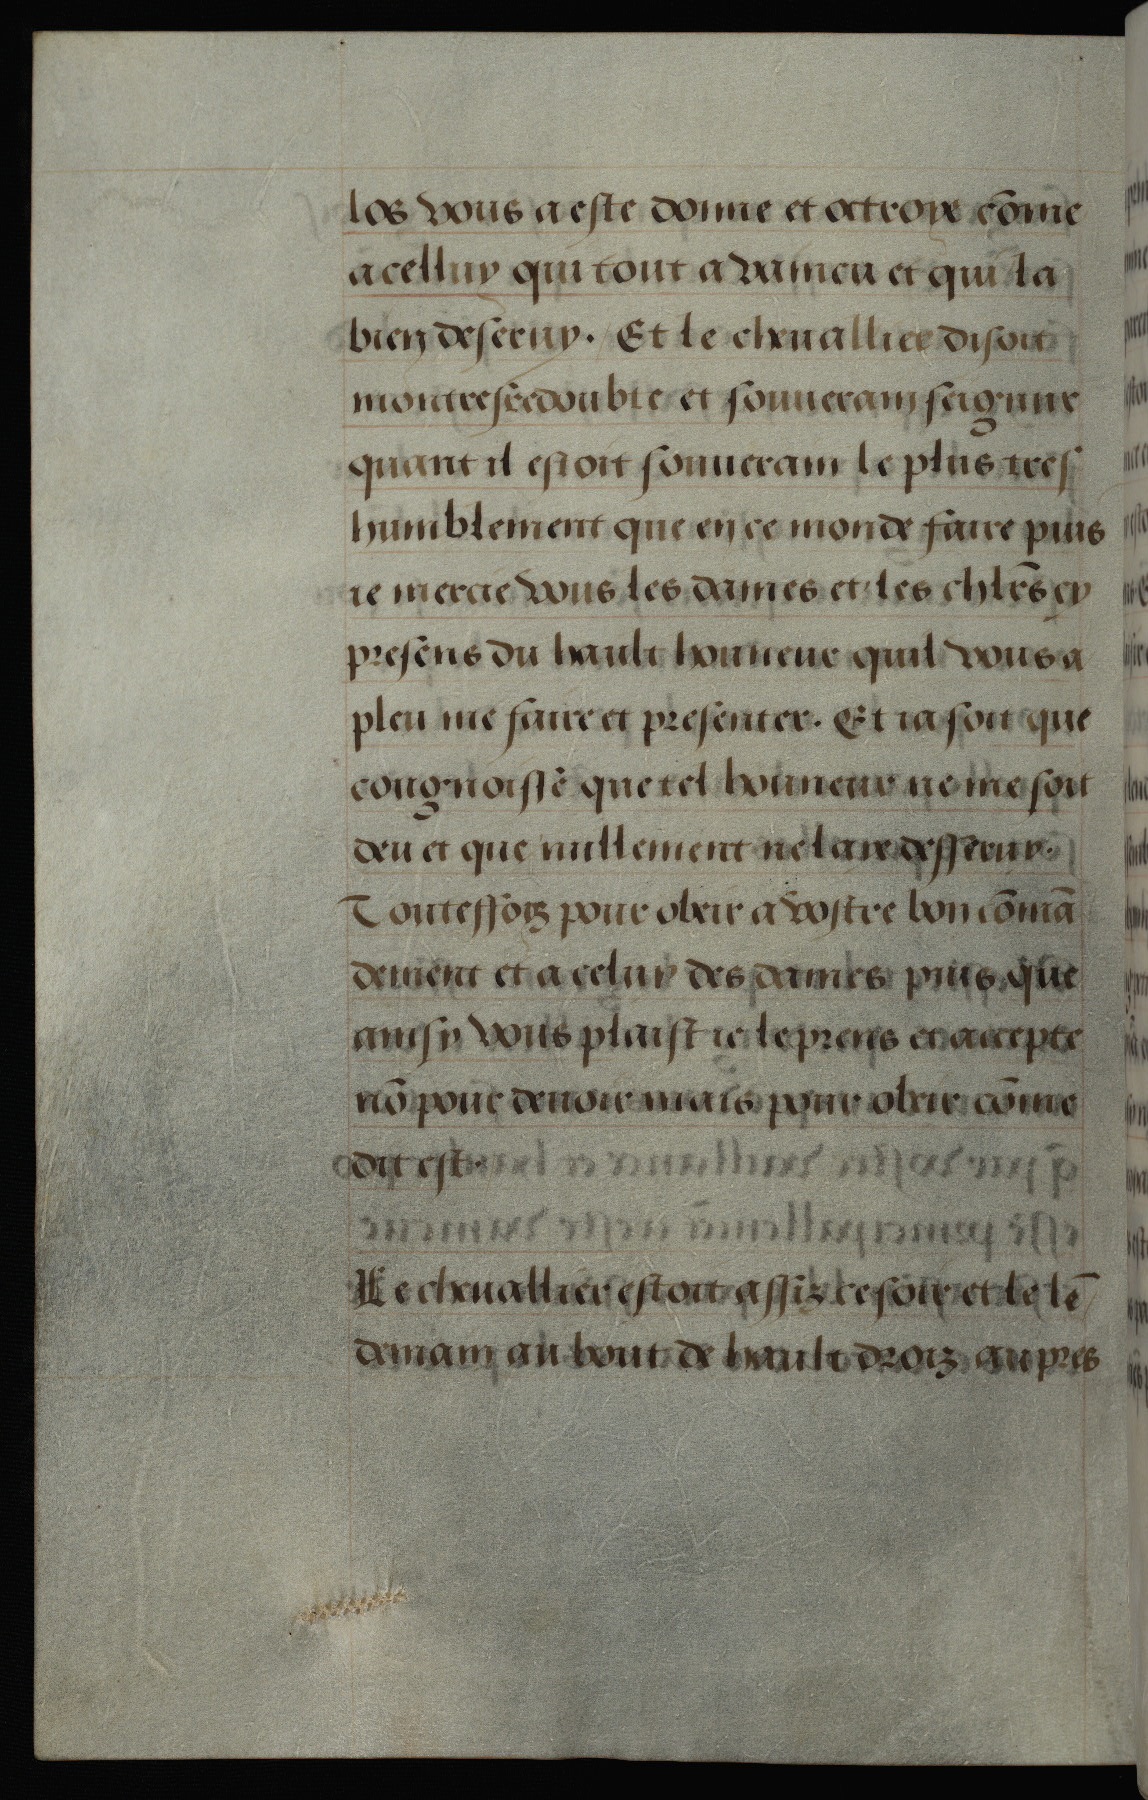 los vous a este donne et octroye cōme
a celluy qui tout a vaincu et qui la
bien deseruy. Et le cheuallier disoit
montresredoubte et souuerain seigneur
quant il estoit souuerain le plus tres
humblement que en ce monde faire puis
ie mercie vous les dames et les chlr̄s cy
presens du hault honneur quil vous a
pleu me faire et presenter. Et ia soit que
congnoisse que tel honneur ne me soit
deu et que nullement ne laie desseruy.
Toutesfoiz pour obeir a vostre bon cōmā
dement et a celuy des dames puis que
ainsy vous plaist ie le prens et accepte
nō pour deuoir mais pour obeir cōme
dit est.
Le cheuallier estoit assiz ce soir et le lē
demain au bout de hault droiz au pres